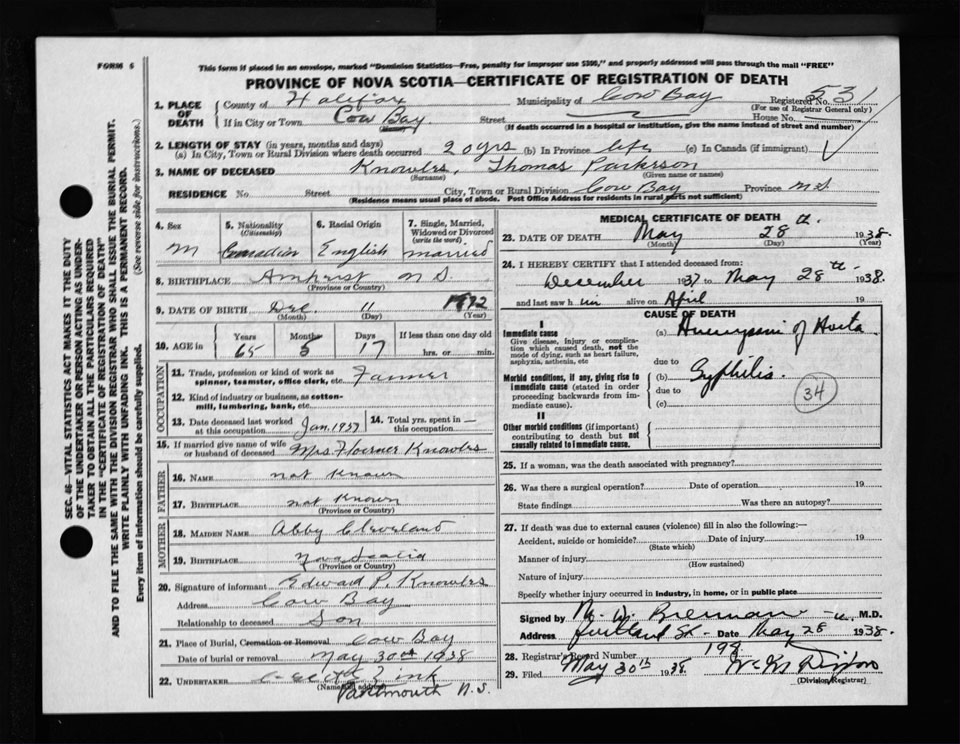 FORM 6
This form if placed in an envelope, marked "Dominion Statistics—Free, penalty for improper use $300," and properly addressed will pass through the mail "FREE"
PROVINCE OF NOVA SCOTIA—CERTIFICATE OF REGISTRATION OF DEATH
1. PLACE OF DEATH County of Halifax Municipality of Cow Bay Registered No. 531
(For use of Registrar General only)
If in City or Town Cow Bay Street House No.
(If death occurred in a hospital or institution, give the name instead of street and number)
2. LENGTH OF STAY (in years, months and days)
(a) In City, Town or Rural Division where death occurred 20 yrs (b) In Province life (c) In Canada (if immigrant)
3. NAME OF DECEASED Knowles, Thomas Parkerson
(Surname) (Given name or names)
RESIDENCE No. Street City, Town or Rural Division Cow Bay Province N.S.
(Residence means usual place of abode. Post Office Address for residents in rural parts not sufficient)
4. Sex 5. Nationality (Citizenship) 6. Racial Origin 7. Single, Married, Widowed or Divorced (write the word)
M Canadian English married
8. BIRTHPLACE Amherst N.S.
(Province or Country)
9. DATE OF BIRTH Dec. 11 1872
(Month) (Day) (Year)
10. AGE in Years Months Days If less than one day old
65 5 17 hrs. or min.
OCCUPATION
11. Trade, profession or kind of work as spinner, teamster, office clerk, etc. Farmer
12. Kind of industry or business, as cotton-mill, lumbering, bank, etc.
13. Date deceased last worked at this occupation Jan. 1937 14. Total yrs. spent in this occupation —
15. If married give name of wife or husband of deceased Mrs Knowles
FATHER
16. NAME not known
17. BIRTHPLACE not known
(Province or Country)
MOTHER
18. MAIDEN NAME Abby Cleveland
19. BIRTHPLACE Nova Scotia
(Province or Country)
20. Signature of informant Edward P. Knowles
Address Cow Bay
Relationship to deceased Son
21. Place of Burial, Cremation or Removal Cow Bay
Date of burial or removal May 30th 1938
22. UNDERTAKER
(Name and address)
Dartmouth N.S.
MEDICAL CERTIFICATE OF DEATH
23. DATE OF DEATH May 28th 1938
(Month) (Day) (Year)
24. I HEREBY CERTIFY that I attended deceased from:
December 1937 to May 28th 1938
and last saw him alive on April 19
CAUSE OF DEATH
I
Immediate cause (a) Aneurysm of Aorta
Give disease, injury or complication which caused death, not the mode of dying, such as heart failure, asphyxia, asthenia, etc
due to
Morbid conditions, if any, giving rise to immediate cause (stated in order proceeding backwards from immediate cause). (b) Syphilis.
due to
(c)
34
II
Other morbid conditions (if important) contributing to death but not causally related to immediate cause.
25. If a woman, was the death associated with pregnancy?
26. Was there a surgical operation? Date of operation 19
State findings Was there an autopsy?
27. If death was due to external causes (violence) fill in also the following:—
Accident, suicide or homicide? Date of injury 19
(State which)
Manner of injury
(How sustained)
Nature of injury
Specify whether injury occurred in Industry, in home, or in public place
Signed by M.D.
Address Portland St. Date May 28 1938.
28. Registrar's Record Number 198
29. Filed May 30th 1938
(Division Registrar)
SEC. 46—VITAL STATISTICS ACT MAKES IT THE DUTY
OF THE UNDERTAKER OR PERSON ACTING AS UNDERTAKER TO OBTAIN ALL THE PARTICULARS REQUIRED
IN THE "CERTIFICATE OF REGISTRATION OF DEATH"
AND TO FILE THE SAME WITH THE DIVISION REGISTRAR WHO SHALL ISSUE THE BURIAL PERMIT.
WRITE PLAINLY WITH UNFADING INK. THIS IS A PERMANENT RECORD.
Every item of information should be carefully supplied. (See reverse side for instructions.)